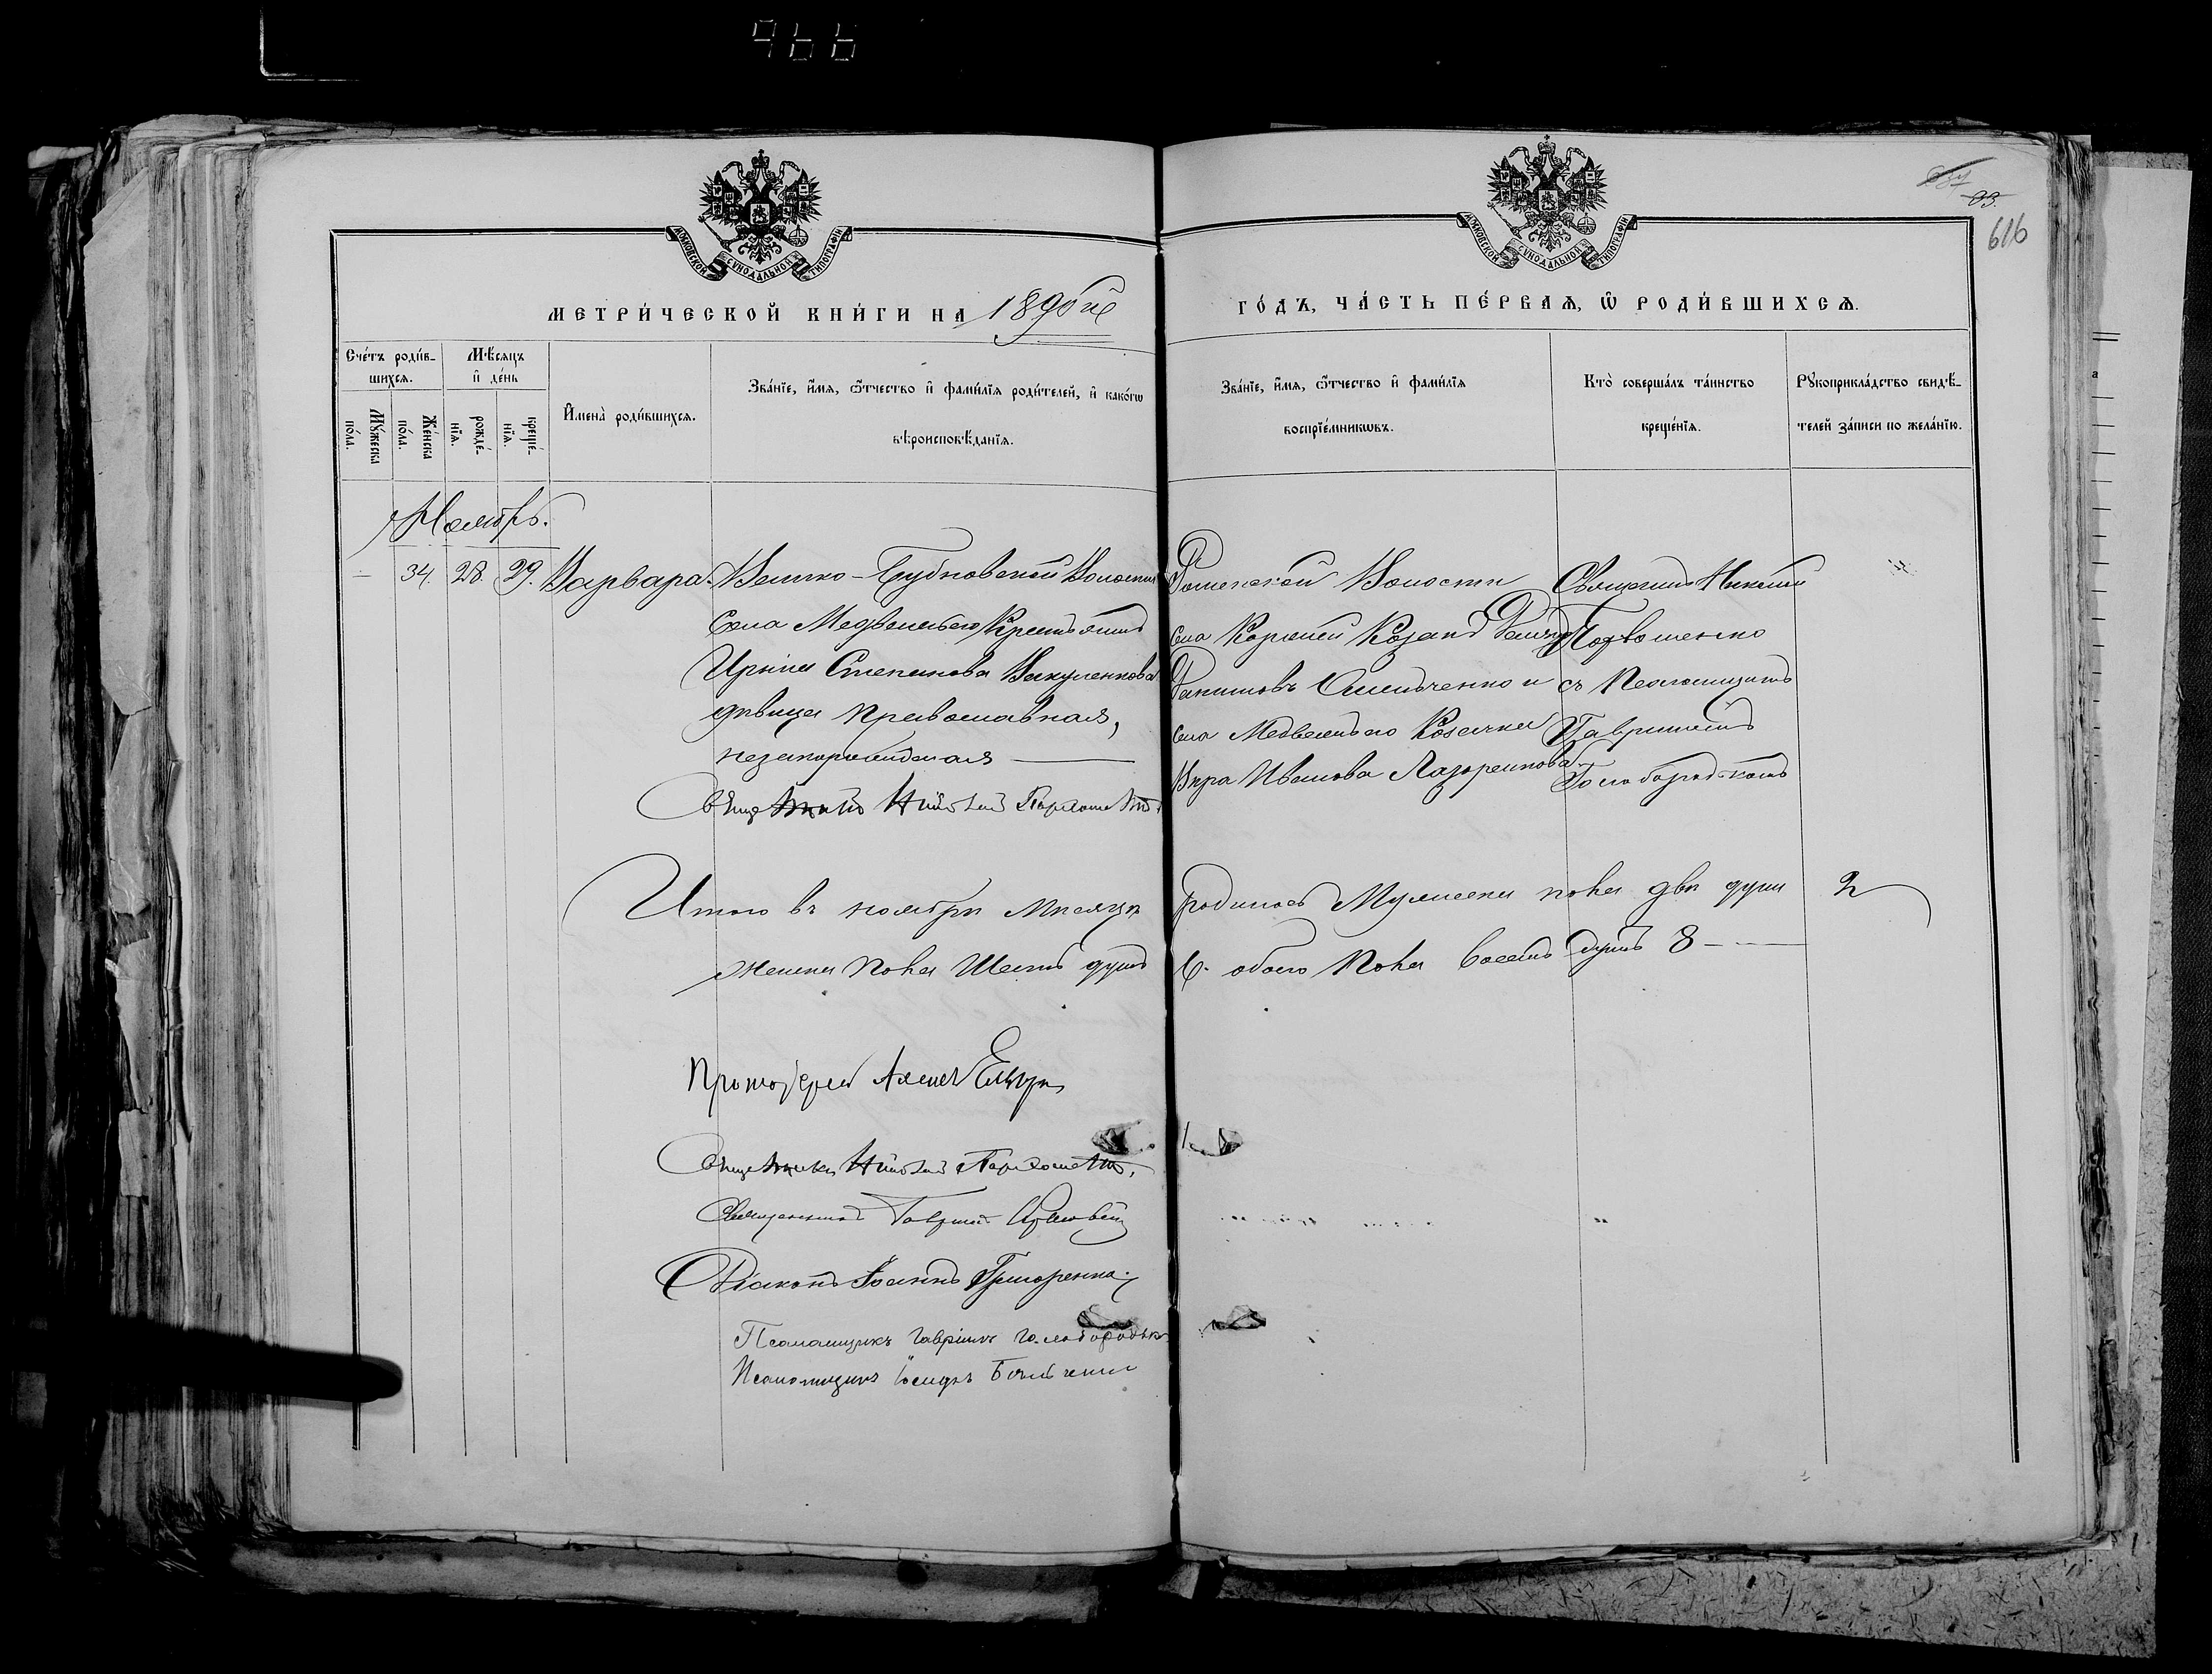 966
616
МОСКОВСКОЙ СѴНОДАЛЬНОЙ ТИПОГРАФІИ
МОСКОВСКОЙ СѴНОДАЛЬНОЙ ТИПОГРАФІИ
МЕТРИ́ЧЕСКОЙ КНИ́ГИ НА 189
ГО́ДЪ, ЧА́СТЬ ПЕ́РВАѦ, Ѡ҆ РОДИ́ВШИХСѦ.
Сче́тъ роди́в-
шихсѧ.
Му́жеска
по́ла.
Же́нска
по́ла.
Мѣ́сяцъ
и҆ де́нь
рожде́-
нїѧ.
креще́-
нїѧ.
И҆мена̀ роди́вшихсѧ.
Зва́нїе, и҆́мѧ, ѻ҆́тчество и҆ фамн́лїѧ роди́телей, и҆ како́гѡ
вѣроисповѣ́данїѧ.
Зва́нїе, и҆́мѧ, ѻ҆́тчество и҆ фами́лїѧ
воспрїе́мникѡвъ.
Кто̀ соверша́лъ та́инство
креще́нїѧ.
Рꙋкоприкла́дство свидѣ́-
телей за́писи по жела́нїю.
Ноябрь.
— 34. 28. 29. Варвара. Велико-Бубновской Волости
Села Медвежьего Крестьянка
Ирина Степанова Вакуленкова
дѣвица православная,
незаконорожденная
Священникъ Николай Пархоменко
Роменской Волости
села Коржей Козакъ
Омельченко и
села Медвежьего Козачка
Вѣра Иванова Лазоренкова
Священникъ Николай
Пархоменко
съ Псаломщикомъ
Гавріиломъ
Голобородькомъ
Итого въ ноябрѣ мѣсяцѣ родилось Мужеска пола двѣ души 2
женска пола шесть душъ 6. обоего пола восемь душъ 8
Протоіерей Алексей
Священникъ Николай Пархоменко.
Священникъ Гавріилъ
Діаконъ Іоаннъ Григоренко
Псаломщикъ Гавріилъ Голобородько
Псаломщикъ Іосифъ